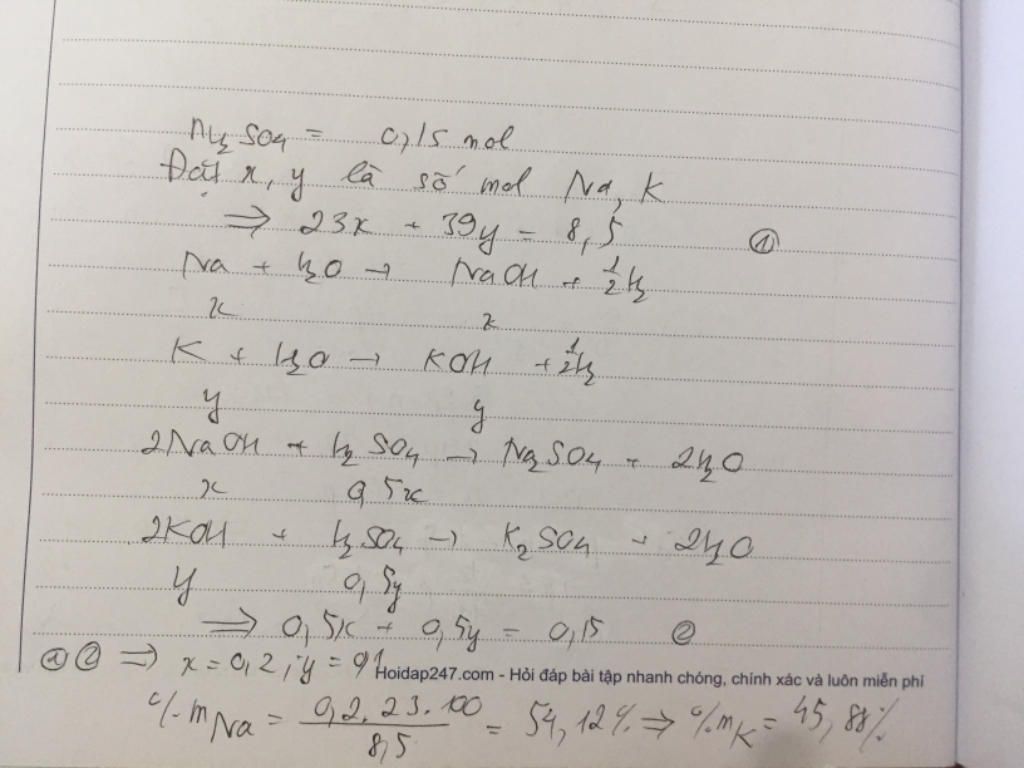 nH₂SO₄ = 0,15 mol
Đặt x, y là số mol Na, K
⇒ 23x + 39y = 8,5 ①
Na + H₂O → NaOH + 1/2 H₂
x x
K + H₂O → KOH + 1/2 H₂
y y
2NaOH + H₂SO₄ → Na₂SO₄ + 2H₂O
x 0,5x
2KOH + H₂SO₄ → K₂SO₄ + 2H₂O
y 0,5y
⇒ 0,5x + 0,5y = 0,15 ②
① ② ⇒ x = 0,2 ; y = 0,1
Hoidap247.com - Hỏi đáp bài tập nhanh chóng, chính xác và luôn miễn phí
%mNa = 0,2.23.100 / 8,5 = 54,12% ⇒ %mK = 45,88%